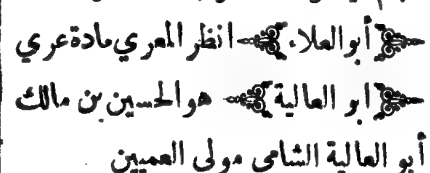 أبو العلاء انظر المعري مادة عري
ابو العالية هو الحسين بن مالك
أبو العالية الشامي مولى العميين